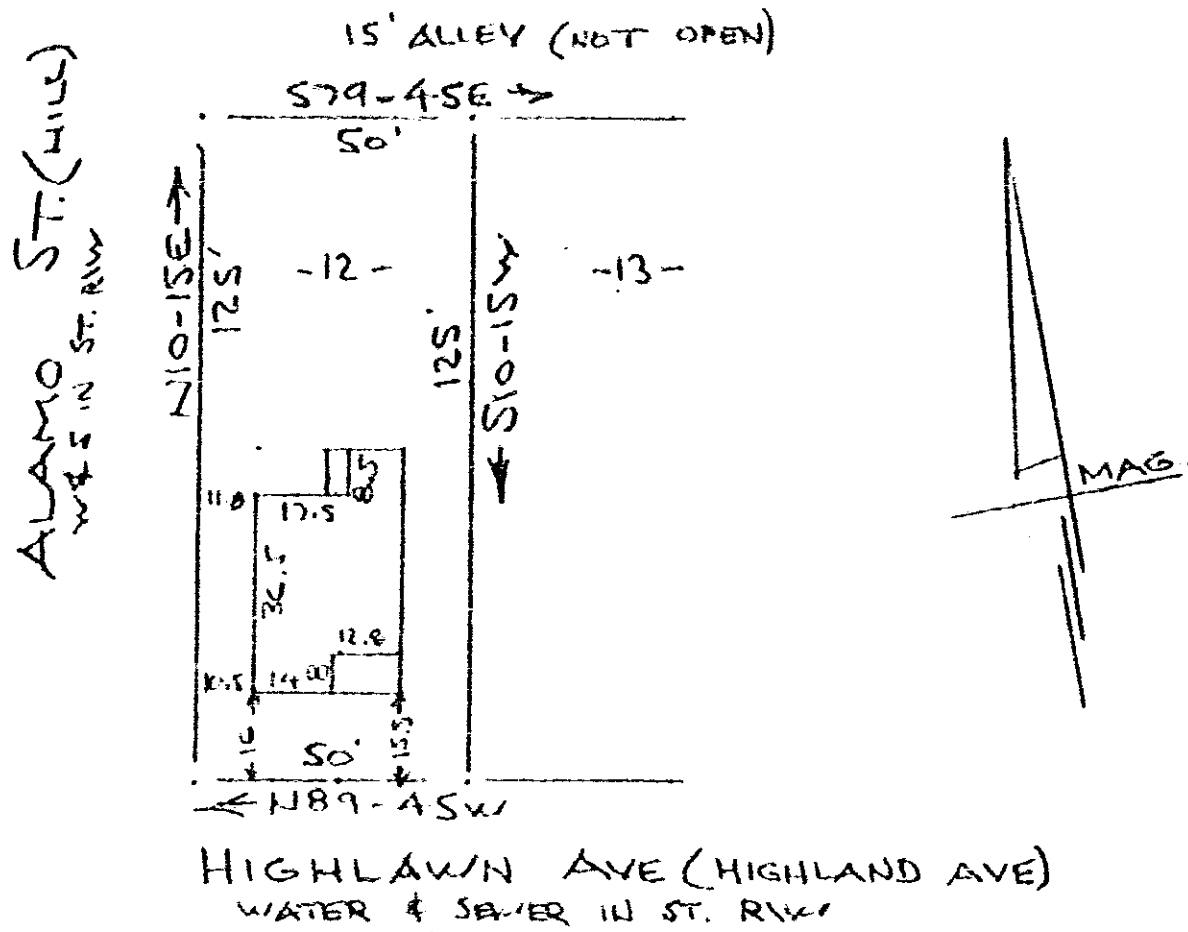 15' ALLEY (NOT OPEN)
S79-45E →
50'
ALAMO ST. (HILL)
W & S IN ST. R/W
N10-15E →
125'
-12-
125'
S10-15W
-13-
MAG.
11.8
17.5
8.5
36.5
12.8
14
8
16
50'
15.5
N89-45W
HIGHLAWN AVE (HIGHLAND AVE)
WATER & SEWER IN ST. R/W